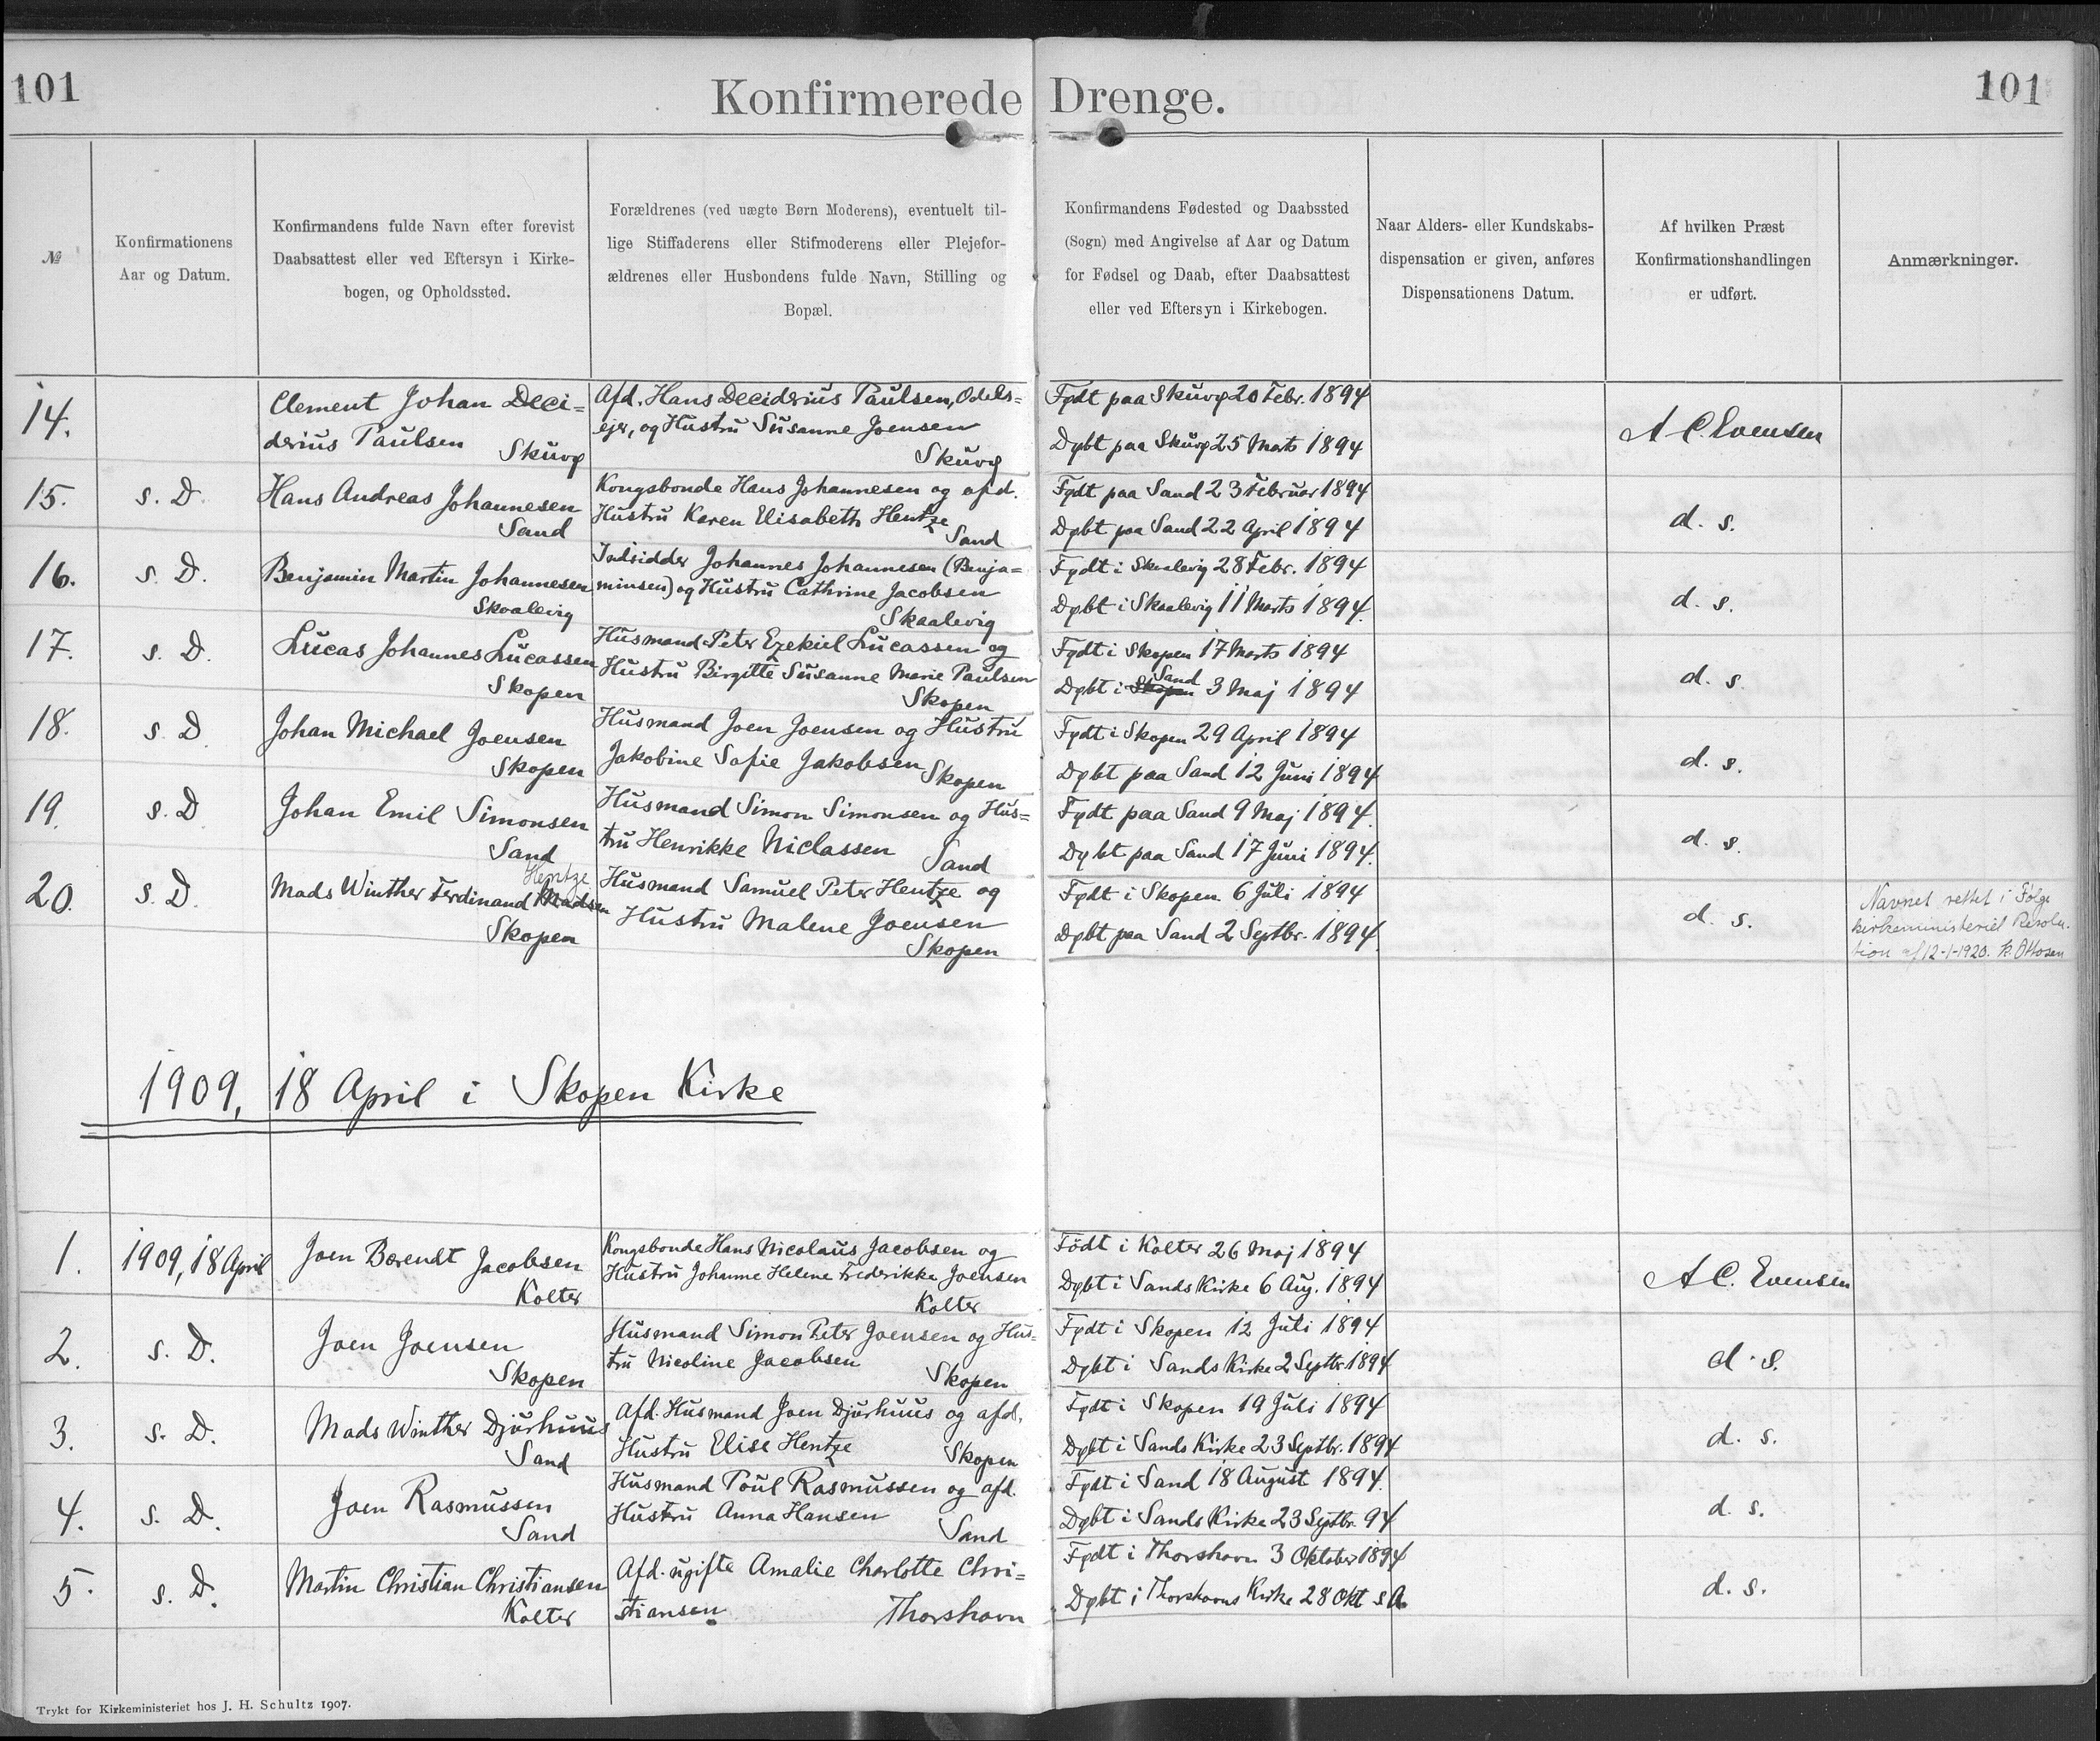 101
Konfirmerede Drenge.
101
№
Konfirmationens
Aar og Datum.
Konfirmandens fulde Navn efter forevist
Daabsattest eller ved Eftersyn i Kirke-
bogen, og Opholdssted.
Forældrenes (ved uægte Børn Moderens), eventuelt til-
lige Stiffaderens eller Stifmoderens eller Plejefor-
ældrenes eller Husbondens fulde Navn, Stilling og
Bopæl.
Konfirmandens Fødested og Daabssted
(Sogn) med Angivelse af Aar og Datum
for Fødsel og Daab, efter Daabsattest
eller ved Eftersyn i Kirkebogen.
Naar Alders- eller Kundskabs-
dispensation er given, anføres
Dispensationens Datum.
Af hvilken Præst
Konfirmationshandlingen
er udført.
Anmærkninger.
14.
Clement Johan Deci=
derius Paulsen
Skuvø
Afd. Hans Deciderius Paulsen, Odels=
ejer, og Hustru Susanne Joensen
Skuvø
Født paa Skuvø 20 Febr. 1894
Døbt paa Skuvø 25 Marts 1894
A C. Evensen
15.
s. D.
Hans Andreas Johannesen
Sand
Kongsbonde Hans Johannesen og afd.
Hustru Karen Elisabeth Hentze
Sand
Født paa Sand 23 Februar 1894
Døbt paa Sand 22 April 1894
d. s.
16.
s. D.
Benjamin Martin Johannesen
Skaalevig
Indsidder Johannes Johannesen (Benja=
minsen) og Hustru Cathrine Jacobsen
Skaalevig
Født i Skaalevig 28 Febr. 1894
Døbt i Skaalevig 11 Marts 1894.
d. s.
17.
s. D.
Lucas Johannes Lucassen
Skopen
Husmand Peter Ezekiel Lucassen og
Hustru Birgitte Susanne Marie Paulsen
Skopen
Født i Skopen 17 Marts 1894
Sand
Døbt i Skopen 3 Maj 1894
d. s.
18.
s. D.
Johan Michael Joensen
Skopen
Husmand Joen Joensen og Hustru
Jakobine Sofie Jakobsen
Skopen
Født i Skopen 29 April 1894
Døbt paa Sand 12 Juni 1894
d. s.
19.
s. D.
Johan Emil Simonsen
Sand
Husmand Simon Simonsen og Hus=
tru Henrikke Niclassen
Sand
Født paa Sand 9 Maj 1894.
Døbt paa Sand 17 Juni 1894.
d. s.
20.
s. D.
Hentze
Mads Winther Ferdinand Madsen
Skopen
Husmand Samuel Peter Hentze og
Hustru Malene Joensen
Skopen
Født i Skopen 6 Juli 1894
Døbt paa Sand 2 Septbr. 1894.
d. s.
Navnet rettet i Følge
kirkeministeriel Resolu-
tion af 12-1-1920. K. Ottosen
1909, 18 April i Skopen Kirke
1.
1909, 18 April
Joen Barendt Jacobsen
Kolter
Kongsbonde Hans Nicolaus Jacobsen og
Hustru Johanne Helene Frederikke Joensen
Kolter
Födt i Kolter 26 Maj 1894
Døbt i Sands Kirke 6 Aug. 1894
A C. Evensen
2.
s. D.
Joen Joensen
Skopen
Husmand Simon Peter Joensen og Hus=
tru Nicoline Jacobsen
Skopen
Født i Skopen 12 Juli 1894
Døbt i Sands Kirke 2 Septbr. 1894
d. s.
3.
s. D.
Mads Winther Djurhuus
Sand
Afd. Husmand Joen Djurhuus og afd.
Hustru Elise Hentze
Skopen
Født i Skopen 19 Juli 1894
Døbt i Sands Kirke 23 Septbr. 1894
d. s.
4.
s. D.
Joen Rasmussen
Sand
Husmand Poul Rasmussen og afd.
Hustru Anna Hansen
Sand
Født i Sand 18 August 1894.
Døbt i Sands Kirke 23 Septbr 94
d. s.
5.
s. D.
Martin Christian Christiansen
Kolter
Afd. ugifte Amalie Charlotte Chri=
stiansen
Thorshavn
Født i Thorshavn 3 Oktober 1894
Døbt i Thorshavns Kirke 28 Okt s A.
d. s.
Trykt for Kirkeministeriet hos J. H. Schultz 1907.